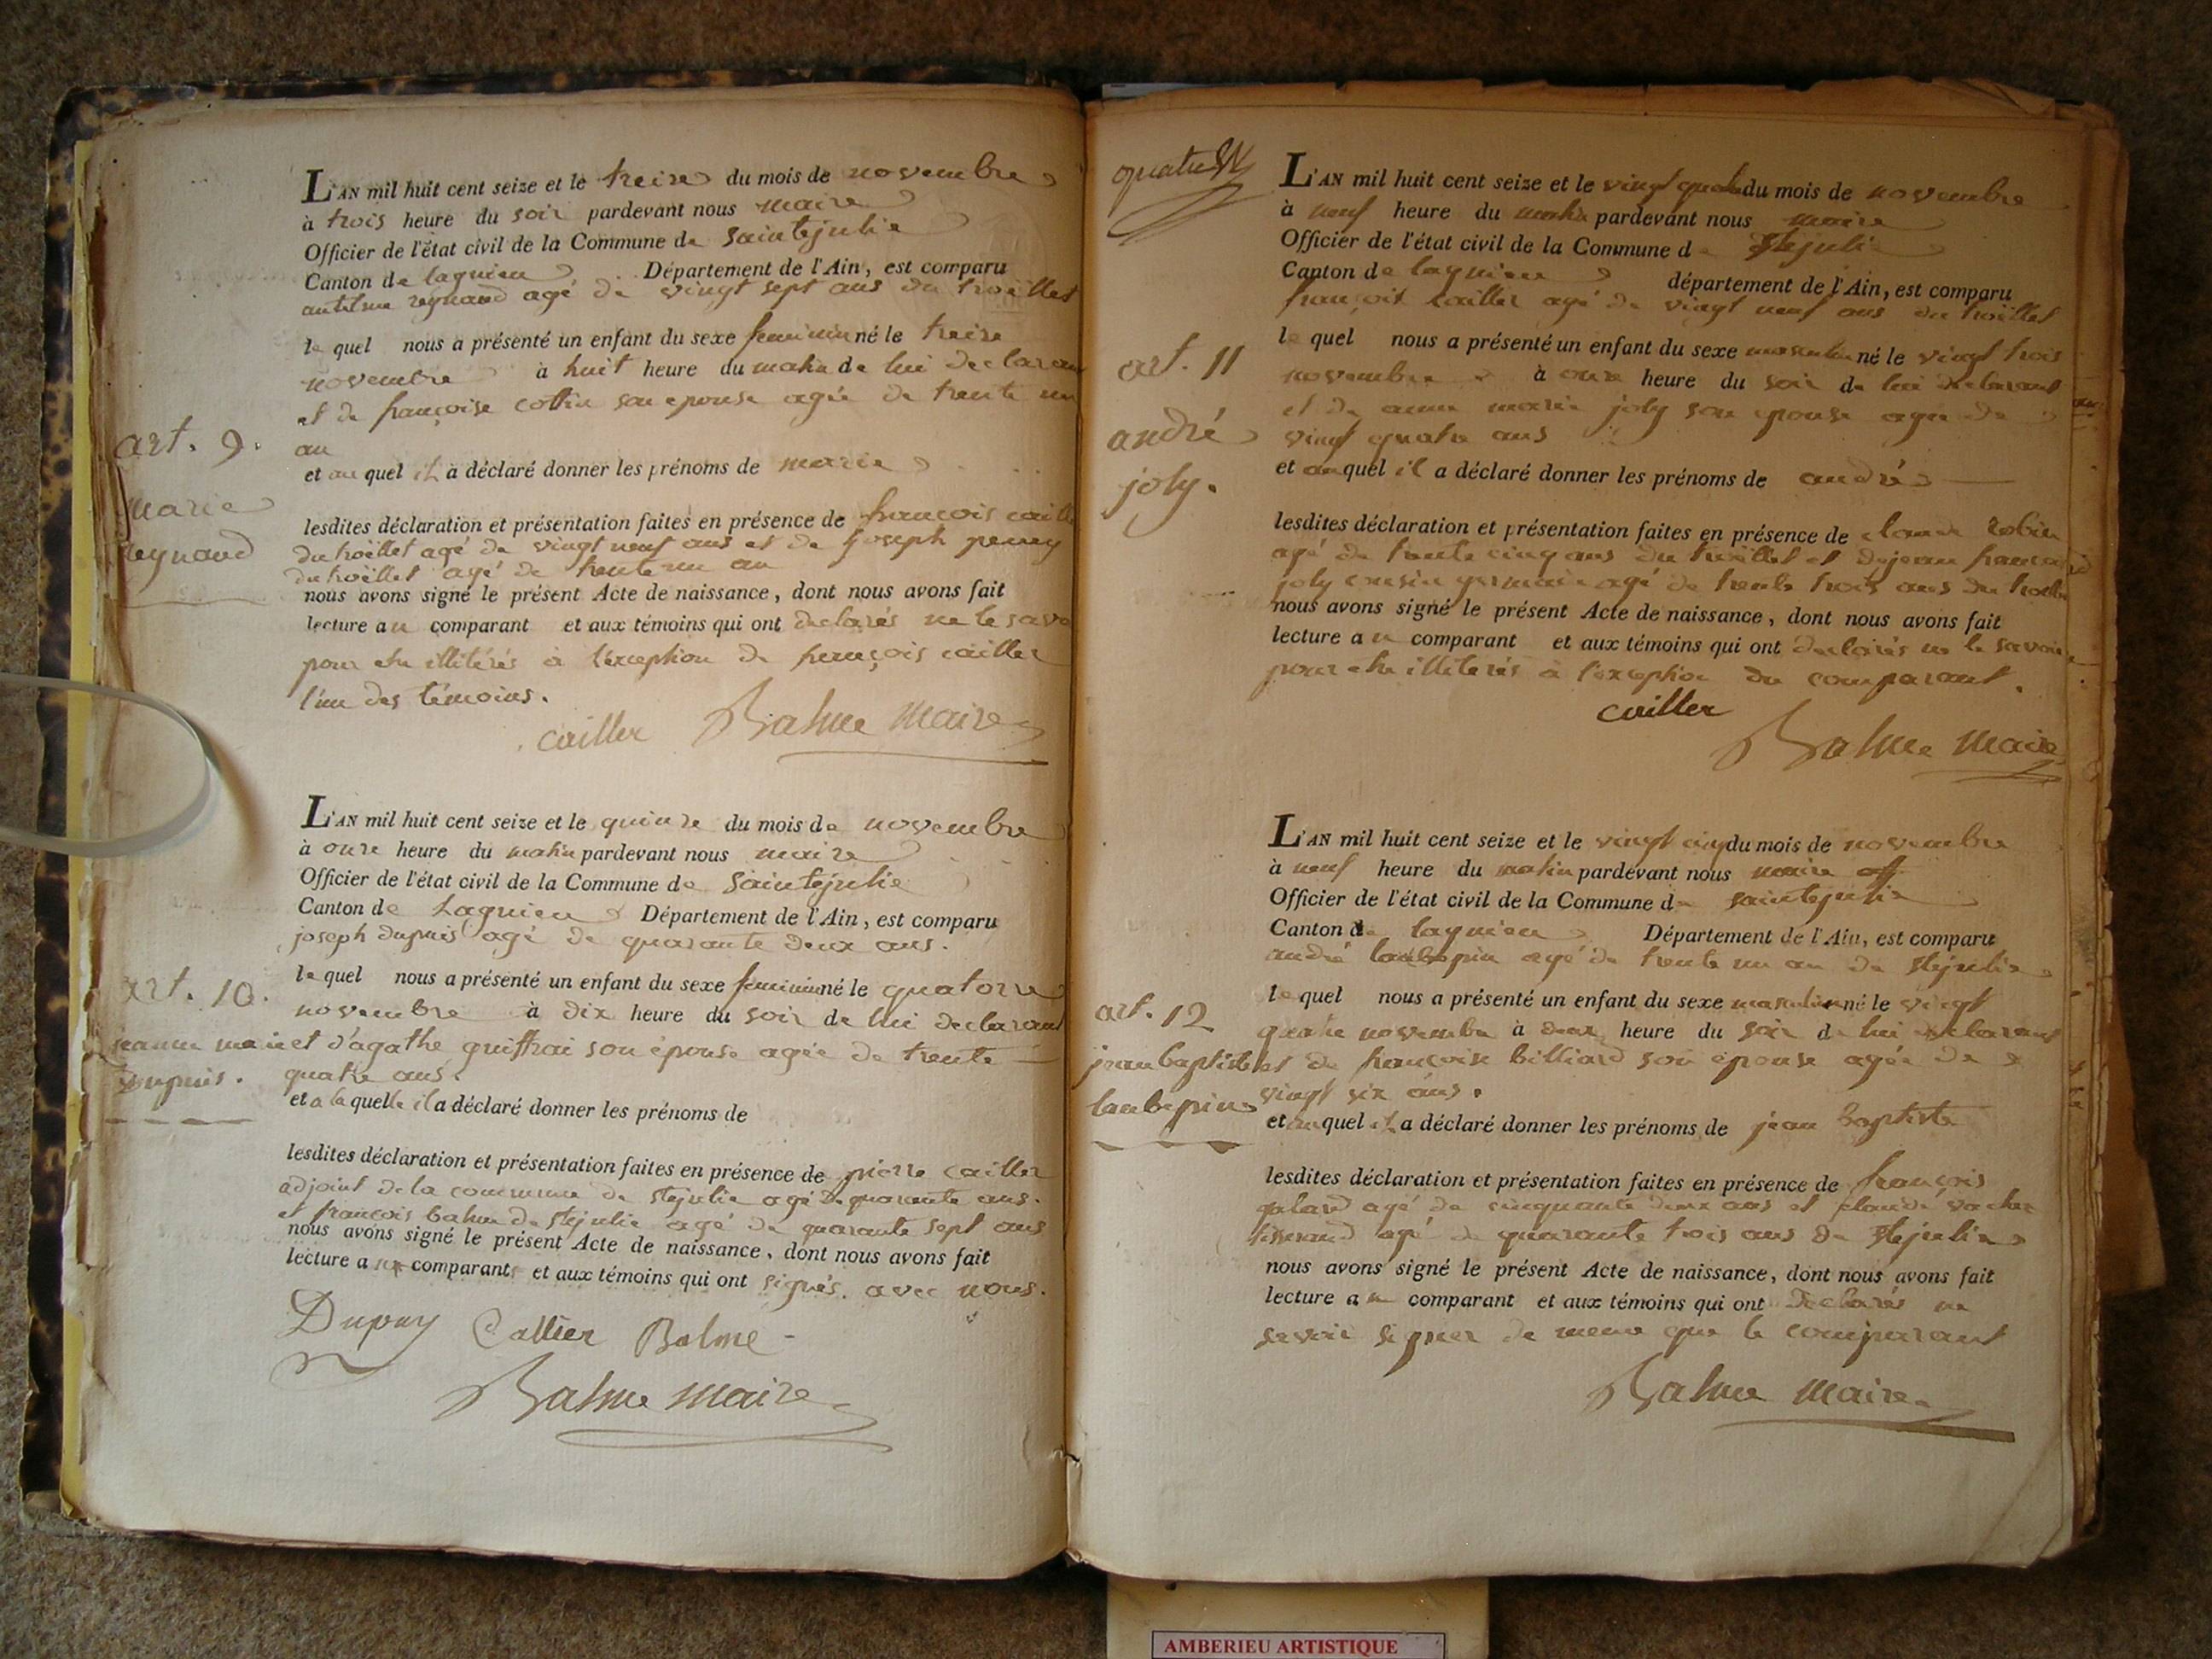 L'AN mil huit cent seize et le treize du mois de novembre
à trois heure du soir pardevant nous maire
Officier de l'état civil de la Commune de saintejulie
Canton de lagnieu Département de l'Ain, est comparu
antelme reynaud agé de vingt sept ans du troëllet
le quel nous a présenté un enfant du sexe feminin né le treize
novembre à huit heure du matin de lui declarant
et de françoise cottin son epouse agée de trente un
art. 9.
an
et au quel il a déclaré donner les prénoms de marie
marie
reynaud
lesdites déclaration et présentation faites en présence de françois caille
du troëllet agé de vingt neuf ans et de joseph
du troëllet agé de trente un an
nous avons signé le présent Acte de naissance, dont nous avons fait
lecture au comparant et aux témoins qui ont declarés ne le savo
pour etre illitérés à l'exception de françois cailler
l'un des témoins.
cailler Balme maire
L'AN mil huit cent seize et le quinze du mois de novembre
à onze heure du matin pardevant nous maire
Officier de l'état civil de la Commune de saintejulie
Canton de Lagnieu Département de l'Ain, est comparu
joseph dupuis agé de quarante deux ans.
le quel nous a présenté un enfant du sexe feminin né le quatorze
art. 10.
novembre à dix heure du soir de lui declarant
jeanne marie
et d'agathe son épouse agée de trente
dupuis.
quatre ans.
et a la quelle il a déclaré donner les prénoms de
lesdites déclaration et présentation faites en présence de pierre cailler
adjoint de la commune de stejulie agé de quarante ans.
et françois balme de stejulie agé de quarante sept ans
nous avons signé le présent Acte de naissance, dont nous avons fait
lecture a comparants et aux témoins qui ont signés. avec nous.
Dupuy Callier Balme
Balme maire
L'AN mil huit cent seize et le vingt quatre du mois de novembre
à neuf heure du matin pardevant nous maire
Officier de l'état civil de la Commune de Stejulie
Canton de lagnieu département de l'Ain, est comparu
françois cailler agé de vingt neuf ans du troëllet
art. 11
le quel nous a présenté un enfant du sexe masculin né le vingt trois
novembre à onze heure du soir de lui declarant
et de anne marie joly son epouse agée de
andré
vingt quatre ans
joly.
et auquel il a déclaré donner les prénoms de andré
lesdites déclaration et présentation faites en présence de claude robin
agé de trente cinq ans du troëllet et de jean
joly cousin germain agé de trente trois ans du
nous avons signé le présent Acte de naissance, dont nous avons fait
lecture au comparant et aux témoins qui ont declarés ne le savoir
pour etre illiterés à l'exception du comparant.
cailler
Balme maire
L'AN mil huit cent seize et le vingt cinq du mois de novembre
à neuf heure du matin pardevant nous maire
Officier de l'état civil de la Commune de saintejulie
Canton de lagnieu Département de l'Ain, est comparu
andré laubepin agé de trente un an de stejulie
art. 12
le quel nous a présenté un enfant du sexe masculin né le vingt
quatre novembre à deux heure du soir de lui declarant
jean baptiste
et de françoise billiard son épouse agée de
vingt six ans.
laubepin
et auquel il a déclaré donner les prénoms de jean baptiste
lesdites déclaration et présentation faites en présence de françois
agé de cinquante deux ans et claude vacher
tisserand agé de quarante trois ans de stejulie
nous avons signé le présent Acte de naissance, dont nous avons fait
lecture au comparant et aux témoins qui ont declarés ne
savoir signer de meme que le comparant
Balme maire
AMBERIEU ARTISTIQUE